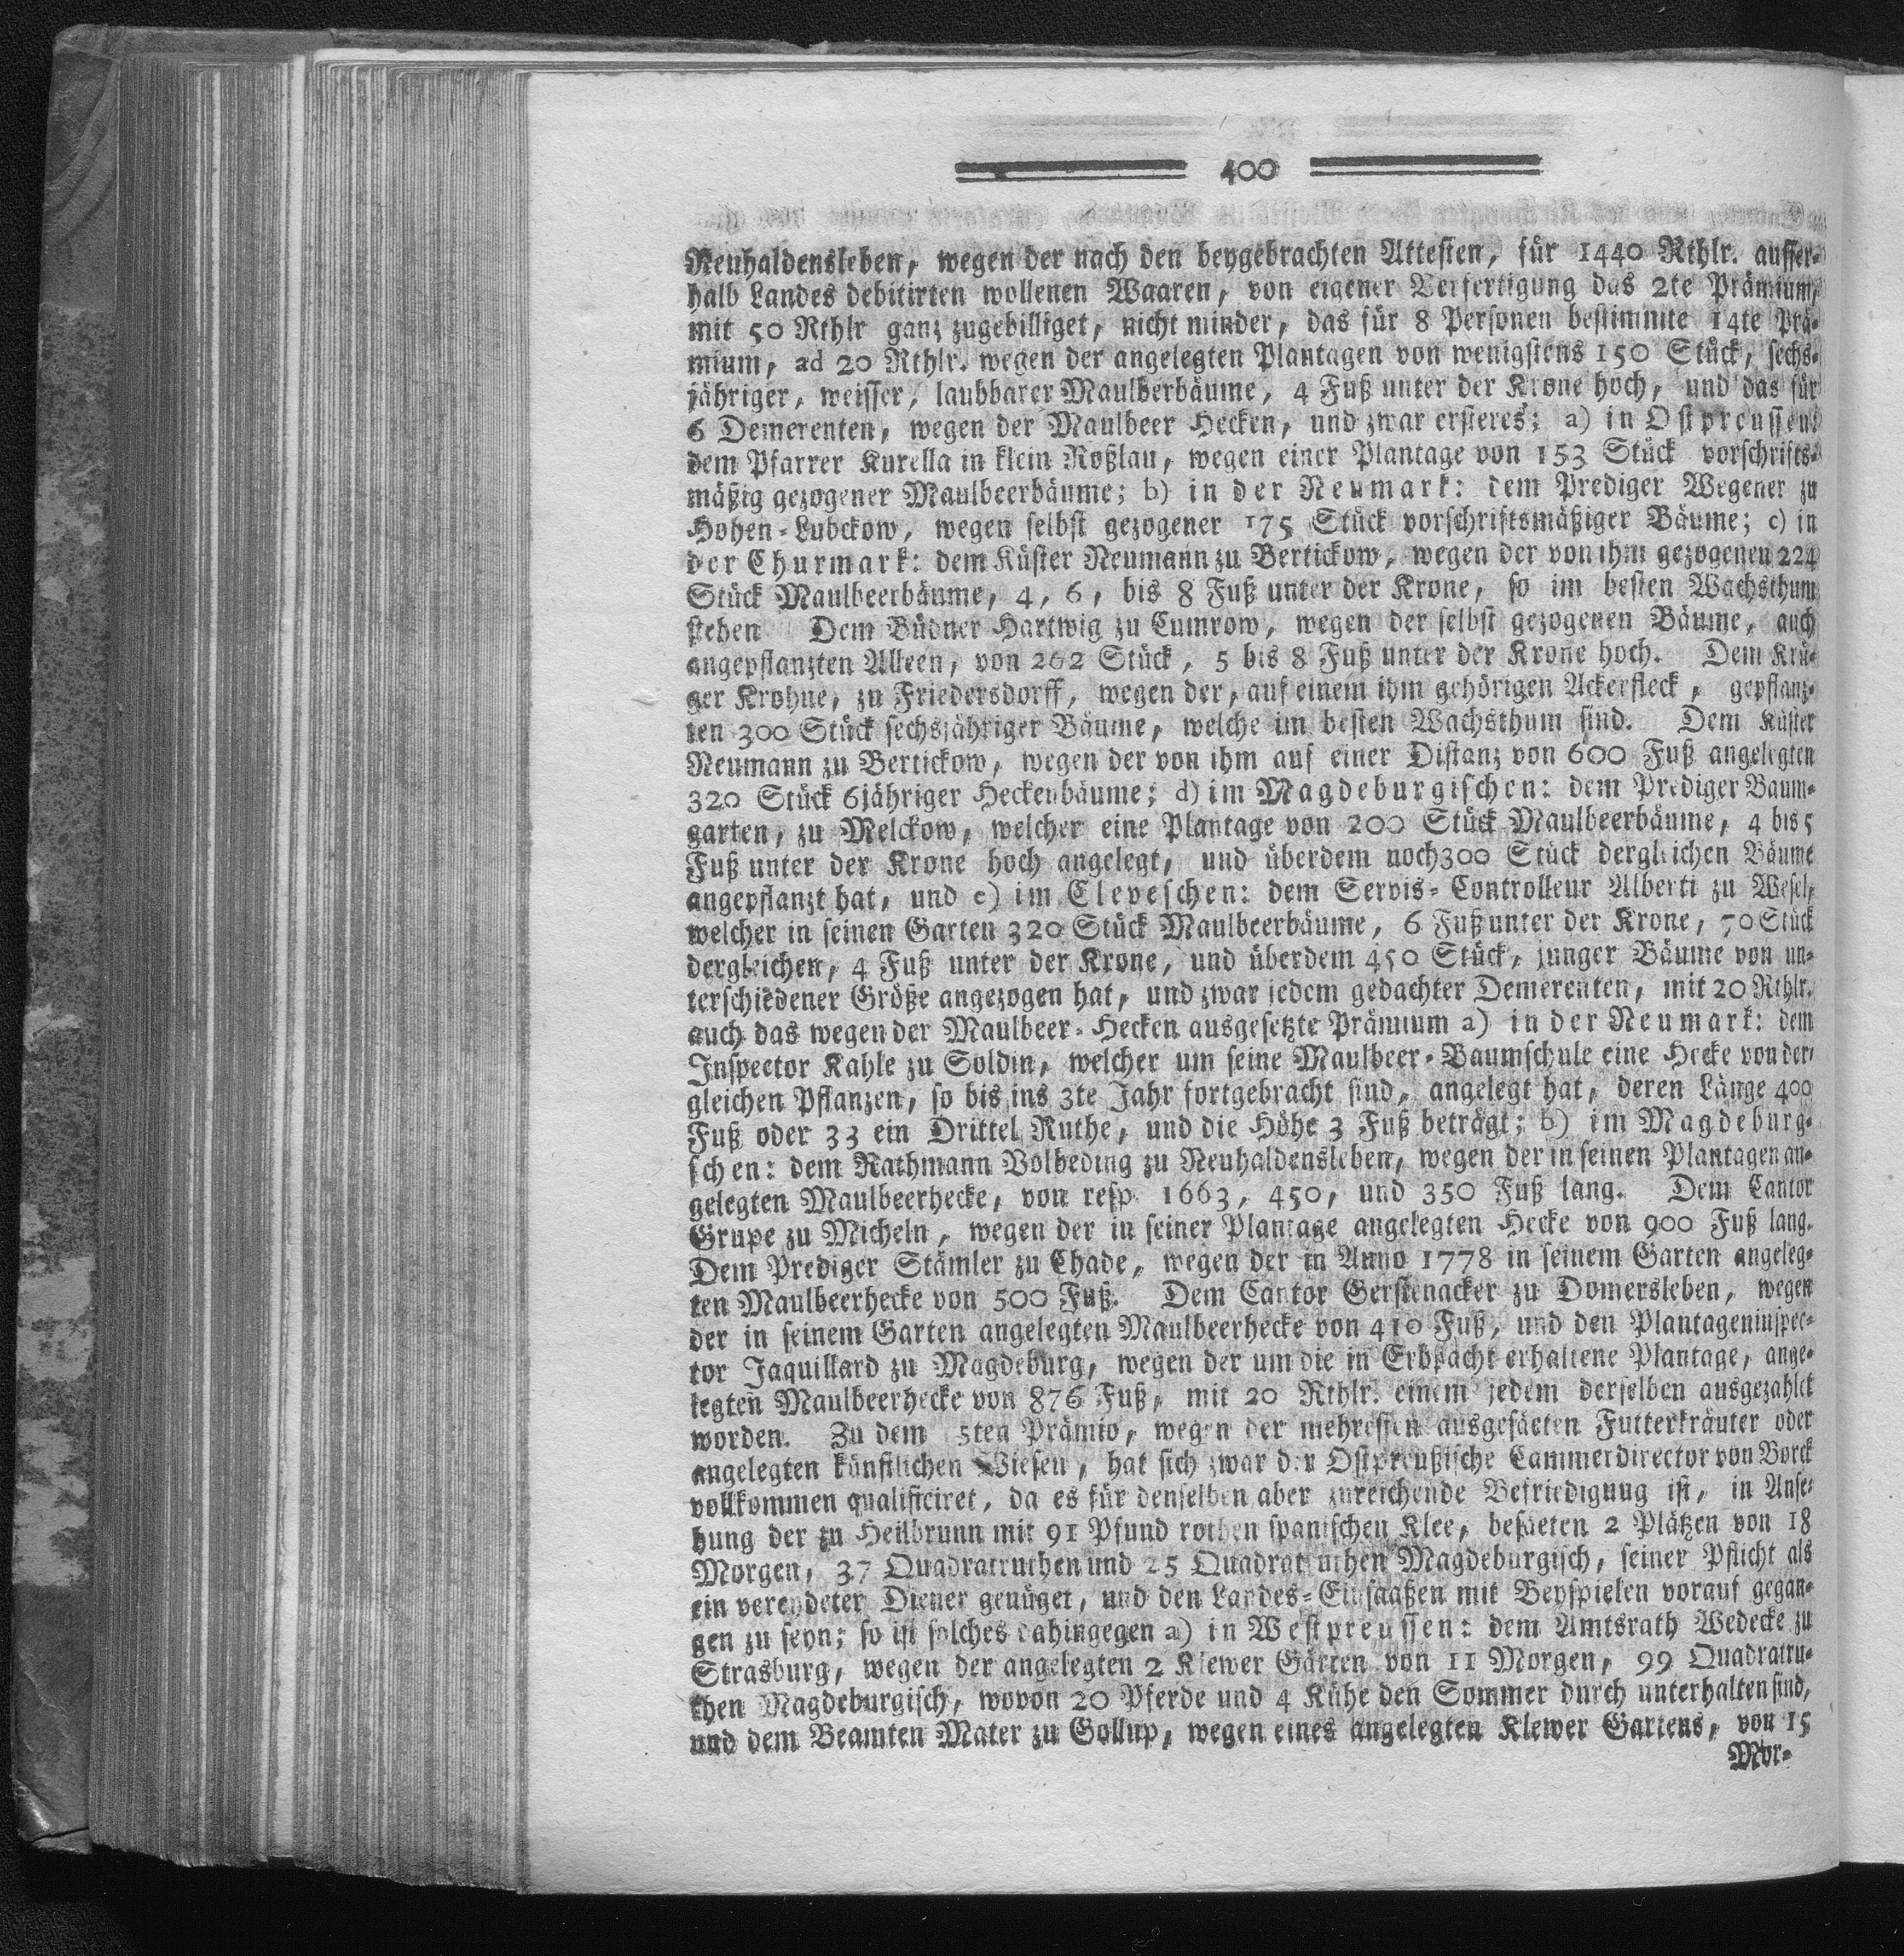 400
Neuhaldensleben, wegen der nach den beygebrachten Attesten, für 1440 Rthlr. ausser-
halb Landes debitirten wollenen Waaren, von eigener Verfertigung das 2te Prämium,
mit 50 Rthlr ganz zugebilliget, nicht minder, das für 8 Personen bestimmte 14te Prä-
mium, ad 20 Rthlr. wegen der angelegten Plantagen von wenigstens 150 Stück, sechs-
jähriger, weisser, laubbarer Maulberbäume, 4 Fuß unter der Krone hoch, und das für
6 Demerenten, wegen der Maulbeer Hecken, und zwar ersteres; a) in Ostpreussen:
dem Pfarrer Kurella in klein Roßlau, wegen einer Plantage von 153 Stück vorschrifts-
mäßig gezogener Maulbeerbäume; b) in der Neumark: dem Prediger Wegener zu
Hohen-Lubckow, wegen selbst gezogener 175 Stück vorschriftsmäßiger Bäume; c) in
der Churmark: dem Küster Neumann zu Bertickow, wegen der von ihm gezogenen 224
Stück Maulbeerbäume, 4, 6, bis 8 Fuß unter der Krone, so im besten Wachsthum
stehen Dem Büdner Hartwig zu Cumrow, wegen der selbst gezogenen Bäume, auch
angepflanzten Alleen, von 262 Stück, 5 bis 8 Fuß unter der Krone hoch. Dem Krü-
ger Krohne, zu Friedersdorff, wegen der, auf einem ihm gehörigen Ackerfleck, gepflanz-
ten 300 Stück sechsjähriger Bäume, welche im besten Wachsthum sind. Dem Küster
Neumann zu Bertickow, wegen der von ihm auf einer Distanz von 600 Fuß angelegten
320 Stück 6jähriger Heckenbäume; d) im Magdeburgischen: dem Prediger Baum-
garten, zu Melckow, welcher eine Plantage von 200 Stück Maulbeerbäume, 4 bis 5
Fuß unter der Krone hoch angelegt, und überdem noch 300 Stück dergleichen Bäume
angepflanzt hat, und e) im Cleveschen: dem Servis-Controlleur Alberti zu Wesel,
welcher in seinen Garten 320 Stück Maulbeerbäume, 6 Fuß unter der Krone, 70 Stück
dergleichen, 4 Fuß unter der Krone, und überdem 450 Stück, junger Bäume von un-
terschiedener Größe angezogen hat, und zwar jedem gedachter Demerenten, mit 20 Rthlr.
auch das wegen der Maulbeer-Hecken ausgesetzte Prämium a) in der Neumark: dem
Inspector Kahle zu Soldin, welcher um seine Maulbeer-Baumschule eine Hecke von der-
gleichen Pflanzen, so bis ins 3te Jahr fortgebracht sind, angelegt hat, deren Länge 400
Fuß oder 33 ein Drittel Ruthe, und die Höhe 3 Fuß beträgt; b) im Magdeburg-
schen: dem Rathmann Volbeding zu Neuhaldensleben, wegen der in seinen Plantagen an-
gelegten Maulbeerhecke, von resp. 1663, 450, und 350 Fuß lang. Dem Cantor
Grupe zu Micheln, wegen der in seiner Plantage angelegten Hecke von 900 Fuß lang.
Dem Prediger Stämler zu Chade, wegen der in Anno 1778 in seinem Garten angeleg-
ten Maulbeerhecke von 500 Fuß. Dem Cantor Gerstenacker zu Domersleben, wegen
der in seinem Garten angelegten Maulbeerhecke von 410 Fuß, und den Plantageninspec-
tor Jaquillard zu Magdeburg, wegen der um die in Erbpacht erhaltene Plantage, ange-
legten Maulbeerhecke von 876 Fuß, mit 20 Rthlr. einem jedem derselben ausgezahlet
worden. Zu dem 5ten Prämio, wegen der mehresten ausgesäeten Futterkräuter oder
angelegten künstlichen Wiesen, hat sich zwar der Ostpreußische Cammerdirector von Borck
vollkommen qualificiret, da es für denselben aber zureichende Befriedigung ist, in Anse-
hung der zu Heilbrunn mit 91 Pfund rothen spanischen Klee, besäeten 2 Plätzen von 18
Morgen, 37 Quadratruthen und 25 Quadratruthen Magdeburgisch, seiner Pflicht als
ein vereydeter Diener genüget, und den Landes-Einsaaßen mit Beyspielen vorauf gegan-
gen zu seyn; so ist solches dahingegen a) in Westpreussen: dem Amtsrath Wedecke zu
Strasburg, wegen der angelegten 2 Klewer Gärten von 11 Morgen, 99 Quadratru-
then Magdeburgisch, wovon 20 Pferde und 4 Kühe den Sommer durch unterhalten sind,
und dem Beamten Mater zu Gollup, wegen eines angelegten Klewer Gartens, von 15
Mor-